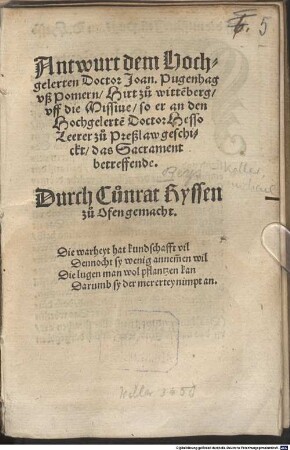 5
Antwurt dem Hoch-
gelerten Doctor Joan. Pugenhag
vß Pomern / Hirt zů wittẽberg /
vff die Missiue / so er an den
Hochgelertẽ Doctor Hesso
Leerer zů Preßlaw geschi-
ckt / das Sacrament
betreffende.
Durch Cůnrat Ryssen
zů Ofen gemacht.
Die warheyt hat kundschafft vil
Dennocht sy wenig annem̃en wil
Die lugen man wol pflantzen kan
Darumb sy der mererteyl nimpt an.
Weller 3450